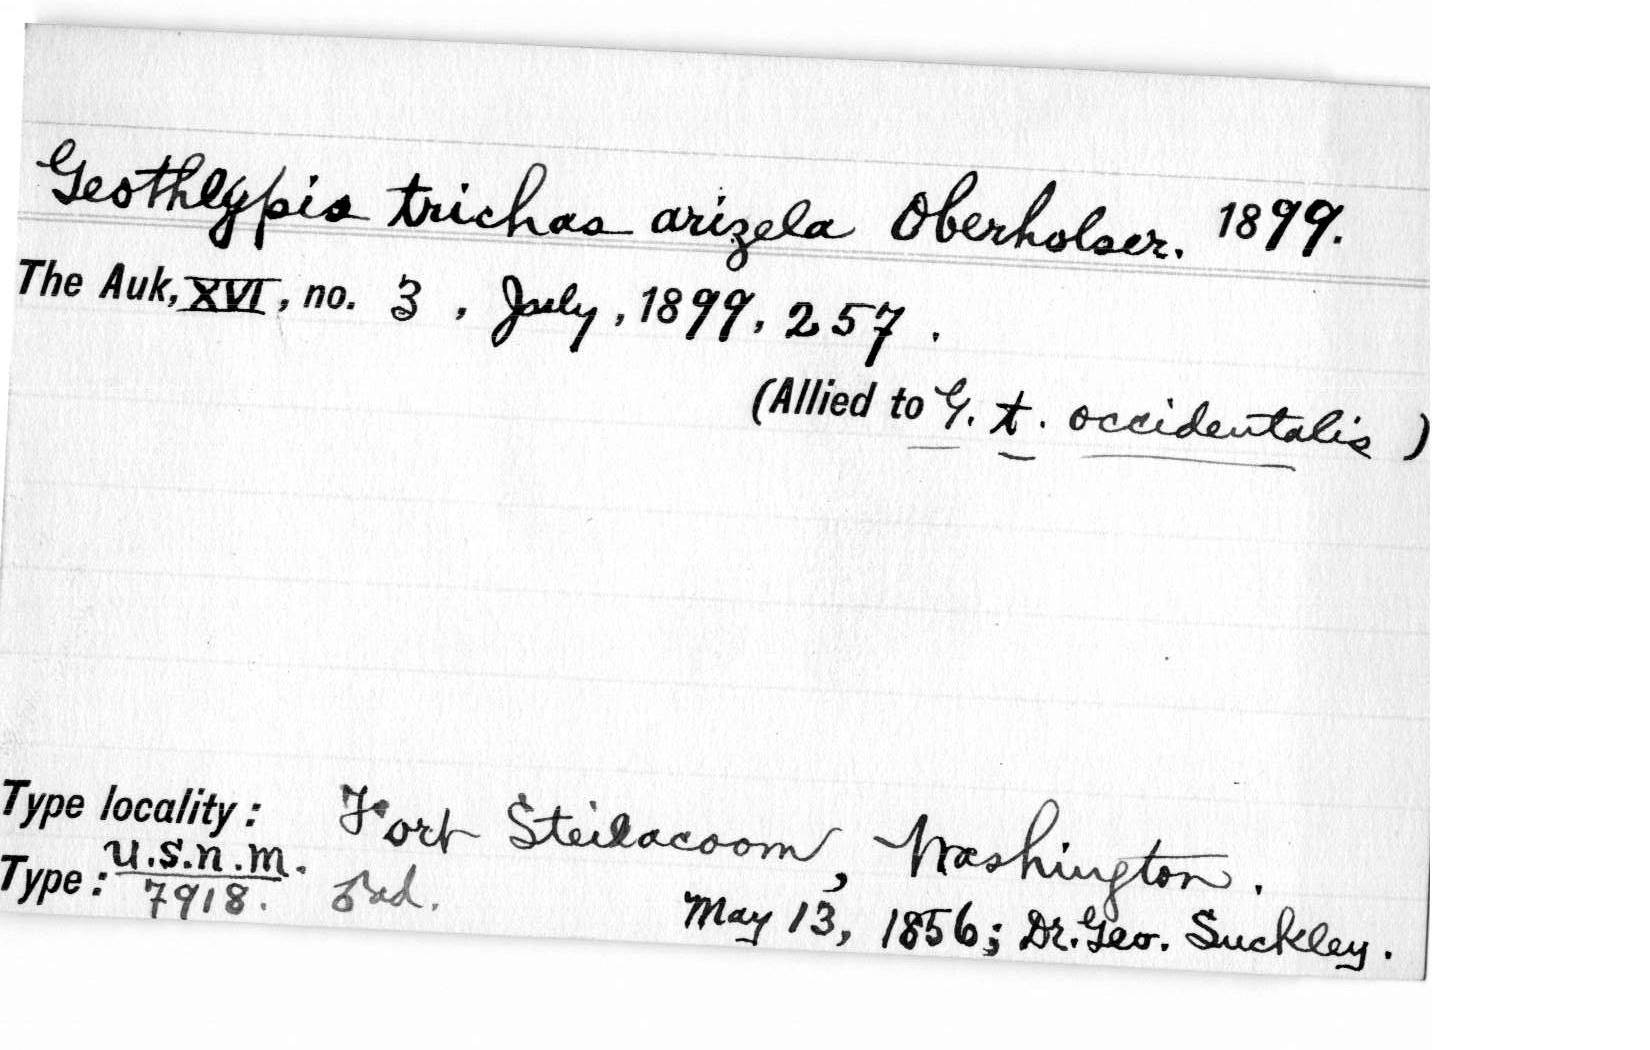 Geothlypis trichas arizela Oberholser. 1899.
The Auk, XVI, no. 3, July, 1899, 257.
(Allied to G. t. occidentalis)
Type locality: Fort Steilacoom, Washington.
Type: U.S.N.M. 7918. ♂ad. May 13, 1856; Dr. Geo. Suckley.